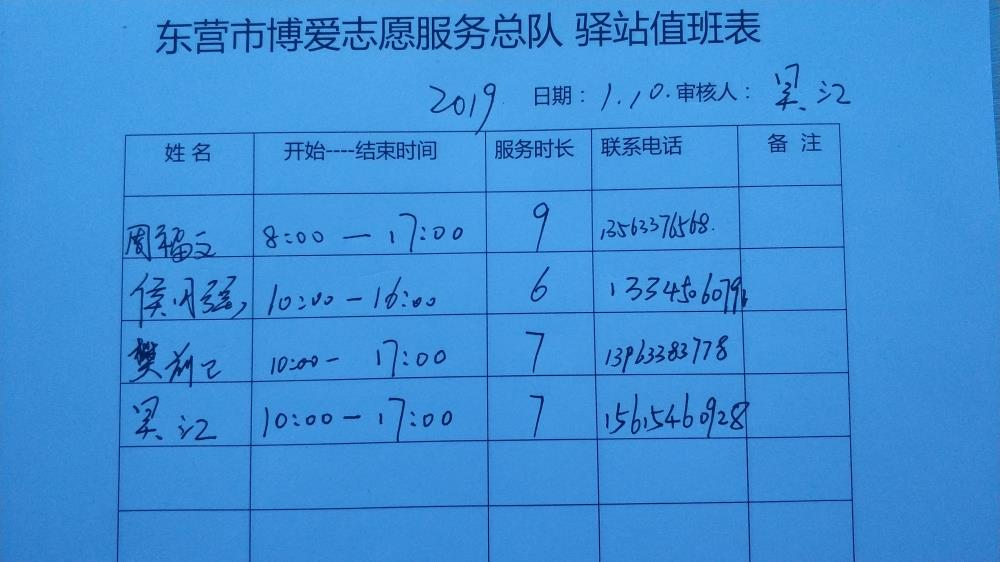 东营市博爱志愿服务总队 驿站值班表
2019 日期：1.10.审核人：吴江
姓名 开始----结束时间 服务时长 联系电话 备注
周福文 8:00—17:00 9 13563376568.
侯月强 10:00-16:00 6 13345060796
樊 10:00- 17:00 7 13963383778
吴江 10:00-17:00 7 15615460928